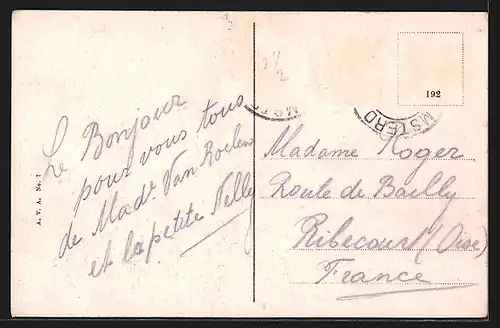 Le Bonjour
pour vous tous
de Madᵉ Van Roelens
et la petite Nelly
A. V. A. No. 7
3 1/2
MST
MSTERD
192
Madame Roger
Route de Bailly
Ribecourt (Oise)
France